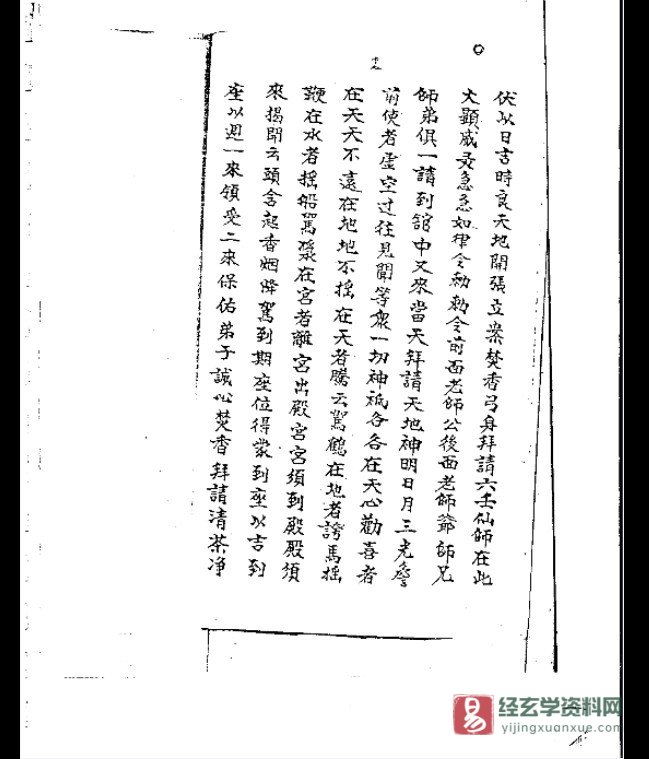 伏以日吉時良天地開張立案焚香弓身拜請六壬仙師在此
大顯威灵急急如律令勅勅令前面老師公後面老師爺師兄
師弟俱一請到舘中又來當天拜請天地神明日月三光詹
前使者虛空过往見聞等衆一切神祗各各在天心勸喜者
在天天不遠在地地不搖在天者騰云駕鶴在地者謗馬搖
鞭在水者搖船駕漿在宮者離宮出殿宮宮須到殿殿須
來揭開云頭舍起香烟降駕到期座位得裳到座以吉到
座以迎一來領受二來保佑弟子誠心焚香拜請清茶净
易 经玄学资料网
yijingxuanxue.com